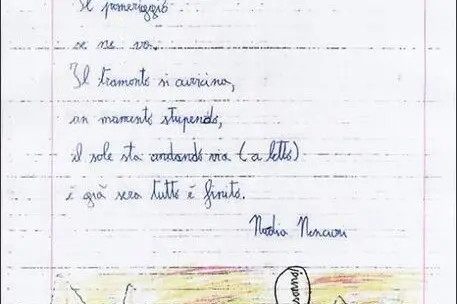 Il pomeriggio
se ne va.
Il tramonto si avvicina,
un momento stupendo,
il sole sta andando via (a letto)
è già sera tutto è finito.
Nadia Nencioni